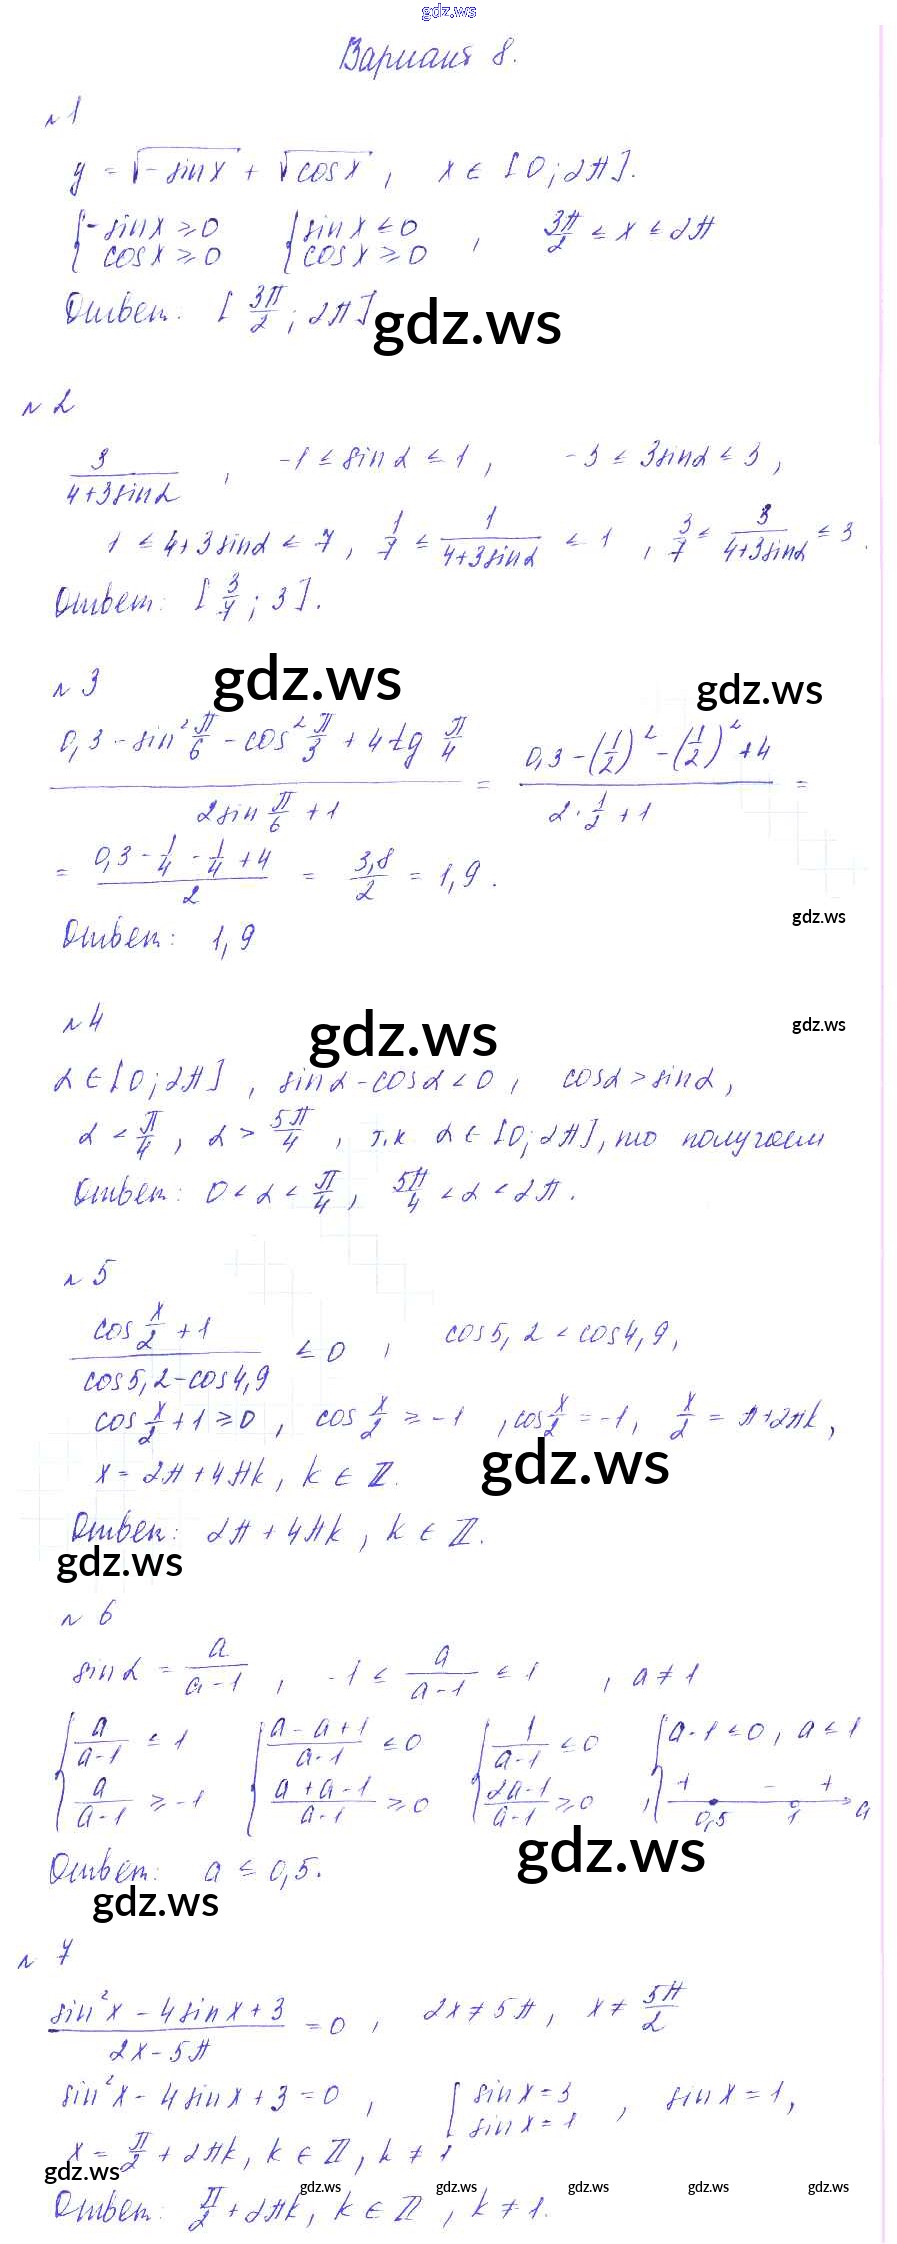 gdz.ws
Вариант 8.
№1
y = √(-sinx) + √(cosx), x ∈ [0; 2π].
{-sinx ≥ 0 {sinx ≤ 0 , 3π/2 ≤ x ≤ 2π
cosx ≥ 0 cosx ≥ 0
Ответ: [3π/2; 2π]
gdz.ws
№2
3/(4+3sinα) , -1 ≤ sinα ≤ 1, -3 ≤ 3sinα ≤ 3,
1 ≤ 4+3sinα ≤ 7, 1/7 ≤ 1/(4+3sinα) ≤ 1, 3/7 ≤ 3/(4+3sinα) ≤ 3.
Ответ: [3/7; 3].
№3
gdz.ws gdz.ws
(0,3 - sin² π/6 - cos² π/3 + 4tg π/4)/(2sin π/6 + 1) = (0,3 - (1/2)² - (1/2)² + 4)/(2·1/2 + 1) =
= (0,3 - 1/4 - 1/4 + 4)/2 = 3,8/2 = 1,9.
gdz.ws
Ответ: 1,9
№4
gdz.ws gdz.ws
α ∈ [0; 2π], sinα - cosα < 0, cosα > sinα,
α < π/4, α > 5π/4, т.к. α ∈ [0; 2π], то получаем
Ответ: 0 < α < π/4, 5π/4 < α < 2π.
№5
(cos x/2 + 1)/(cos5,2 - cos4,9) ≤ 0, cos5,2 < cos4,9,
cos x/2 + 1 ≥ 0, cos x/2 ≥ -1, cos x/2 = -1, x/2 = π+2πk,
x = 2π + 4πk, k ∈ Z.
gdz.ws
Ответ: 2π + 4πk, k ∈ Z.
gdz.ws
№6
sinα = a/(a-1), -1 ≤ a/(a-1) ≤ 1, a ≠ 1
{a/(a-1) ≤ 1 {(a-a+1)/(a-1) ≤ 0 {1/(a-1) ≤ 0 {a-1 ≤ 0, a ≤ 1
a/(a-1) ≥ -1 (a+a-1)/(a-1) ≥ 0 (2a-1)/(a-1) ≥ 0, + - + 0,5 1 a
gdz.ws
Ответ: a ≤ 0,5.
gdz.ws
№7
(sin²x - 4sinx + 3)/(2x - 5π) = 0, 2x ≠ 5π, x ≠ 5π/2
sin²x - 4sinx + 3 = 0, [sinx = 3 , sinx = 1,
sinx = 1
x = π/2 + 2πk, k ∈ Z, k ≠ 1
gdz.ws
gdz.ws gdz.ws gdz.ws gdz.ws gdz.ws
Ответ: π/2 + 2πk, k ∈ Z, k ≠ 1.